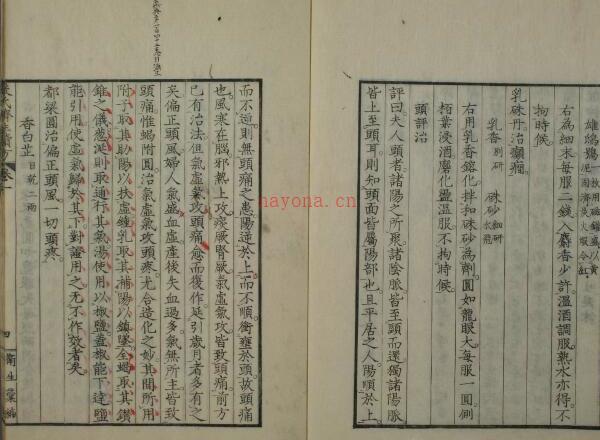 雄鴟鴞一
右為細末每服二錢入麝香少許溫酒調服熟水亦得不
拘時候
乳硃丹治癲癇
乳香別研 硃砂細研水飛
右用乳香鎔化拌和硃砂為劑圓如龍眼大每服一圓側
柏葉浸酒磨化溫服不拘時候
頭評治
評曰夫人頭者諸陽之所聚諸陰脈皆至頸而還獨諸陽脈
皆上至頭耳則知頭面皆屬陽部也且平居之人陽順於上
而不逆則無頭痛之患陽逆於上而不順衝壅於頭故頭痛
也風寒在腦邪熱上攻痰厥腎厥氣虛氣攻皆致頭痛前方
已有治法但氣虛氣攻頭痛愈而復作延引歲月者多有之
矣偏正頭風婦人氣盛血虛產後失血過多氣無所主皆致
頭痛惟蝎附圓治氣虛氣攻頭疼無合造化之妙其間所用
附子取其助陽以扶虛鍾乳取其補陽以鎮墜全蝎取其鑽
錐之儀葱涎則取通行其氣湯使用以椒鹽蓋椒能下達鹽
能引用使虛氣歸於其下對證用之無不作效者矣
都梁圓治偏正頭風一切頭疼
香白芷日乾二兩
四
衛生彙編
hayona.cn